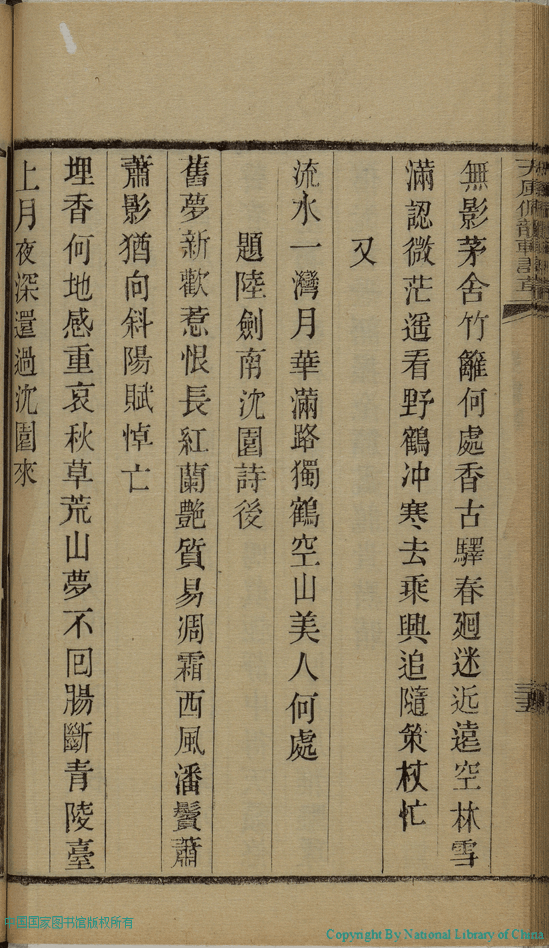 無影茅舍竹籬何處香古驛春廻迷近遠空林雪
滿認微茫遥看野鶴冲寒去乘興追隨策杖忙
又
流水一灣月華滿路獨鶴空山美人何處
題陸劍南沈園詩後
舊夢新歡惹恨長紅蘭艷質易凋霜西風潘鬢蕭
蕭影猶向斜陽賦悼亡
埋香何地感重哀秋草荒山夢不回腸斷青陵臺
上月夜深還過沈園來
中国国家图书馆版权所有
Copyright By National Library of China